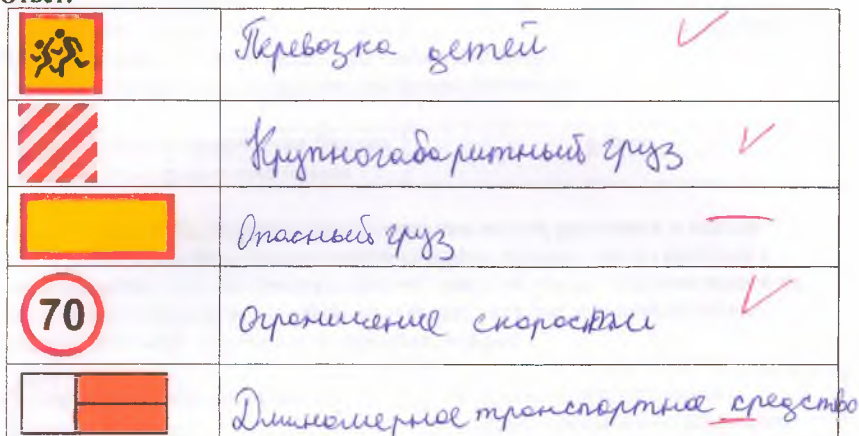 Ответ:
Перевозка детей
Крупногабаритный груз
Опасный груз
70
Ограничение скорости
Длиномерное транспортное средство